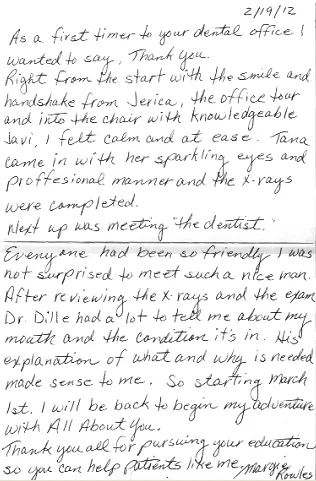 2/19/12
As a first timer to your dental office I
wanted to say, Thank you.
Right from the start with the smile and
handshake from Jerica, the office tour
and into the chair with knowledgeable
Javi, I felt calm and at ease. Tana
came in with her sparkling eyes and
proffesional manner and the x-rays
were completed.
Next up was meeting "the dentist."
Everyone had been so friendly I was
not surprised to meet such a nice man.
After reviewing the x-rays and the exam
Dr. Dille had a lot to tell me about my
mouth and the condition it's in. His
explanation of what and why is needed
made sense to me. So starting March
1st. I will be back to begin my adventure
with All About You.
Thank you all for pursuing your education
so you can help patients like me. Margie
Rowles